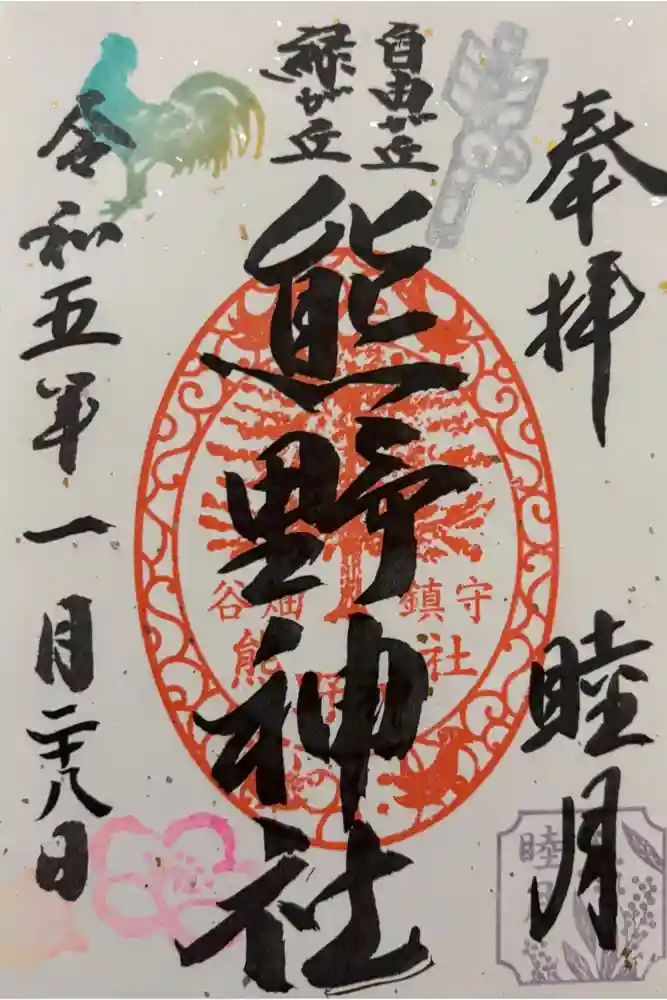 奉拝
睦月
自由が丘
緑が丘
熊野神社
谷畑 鎮守
熊野 社
令和五年一月二十八日
睦月